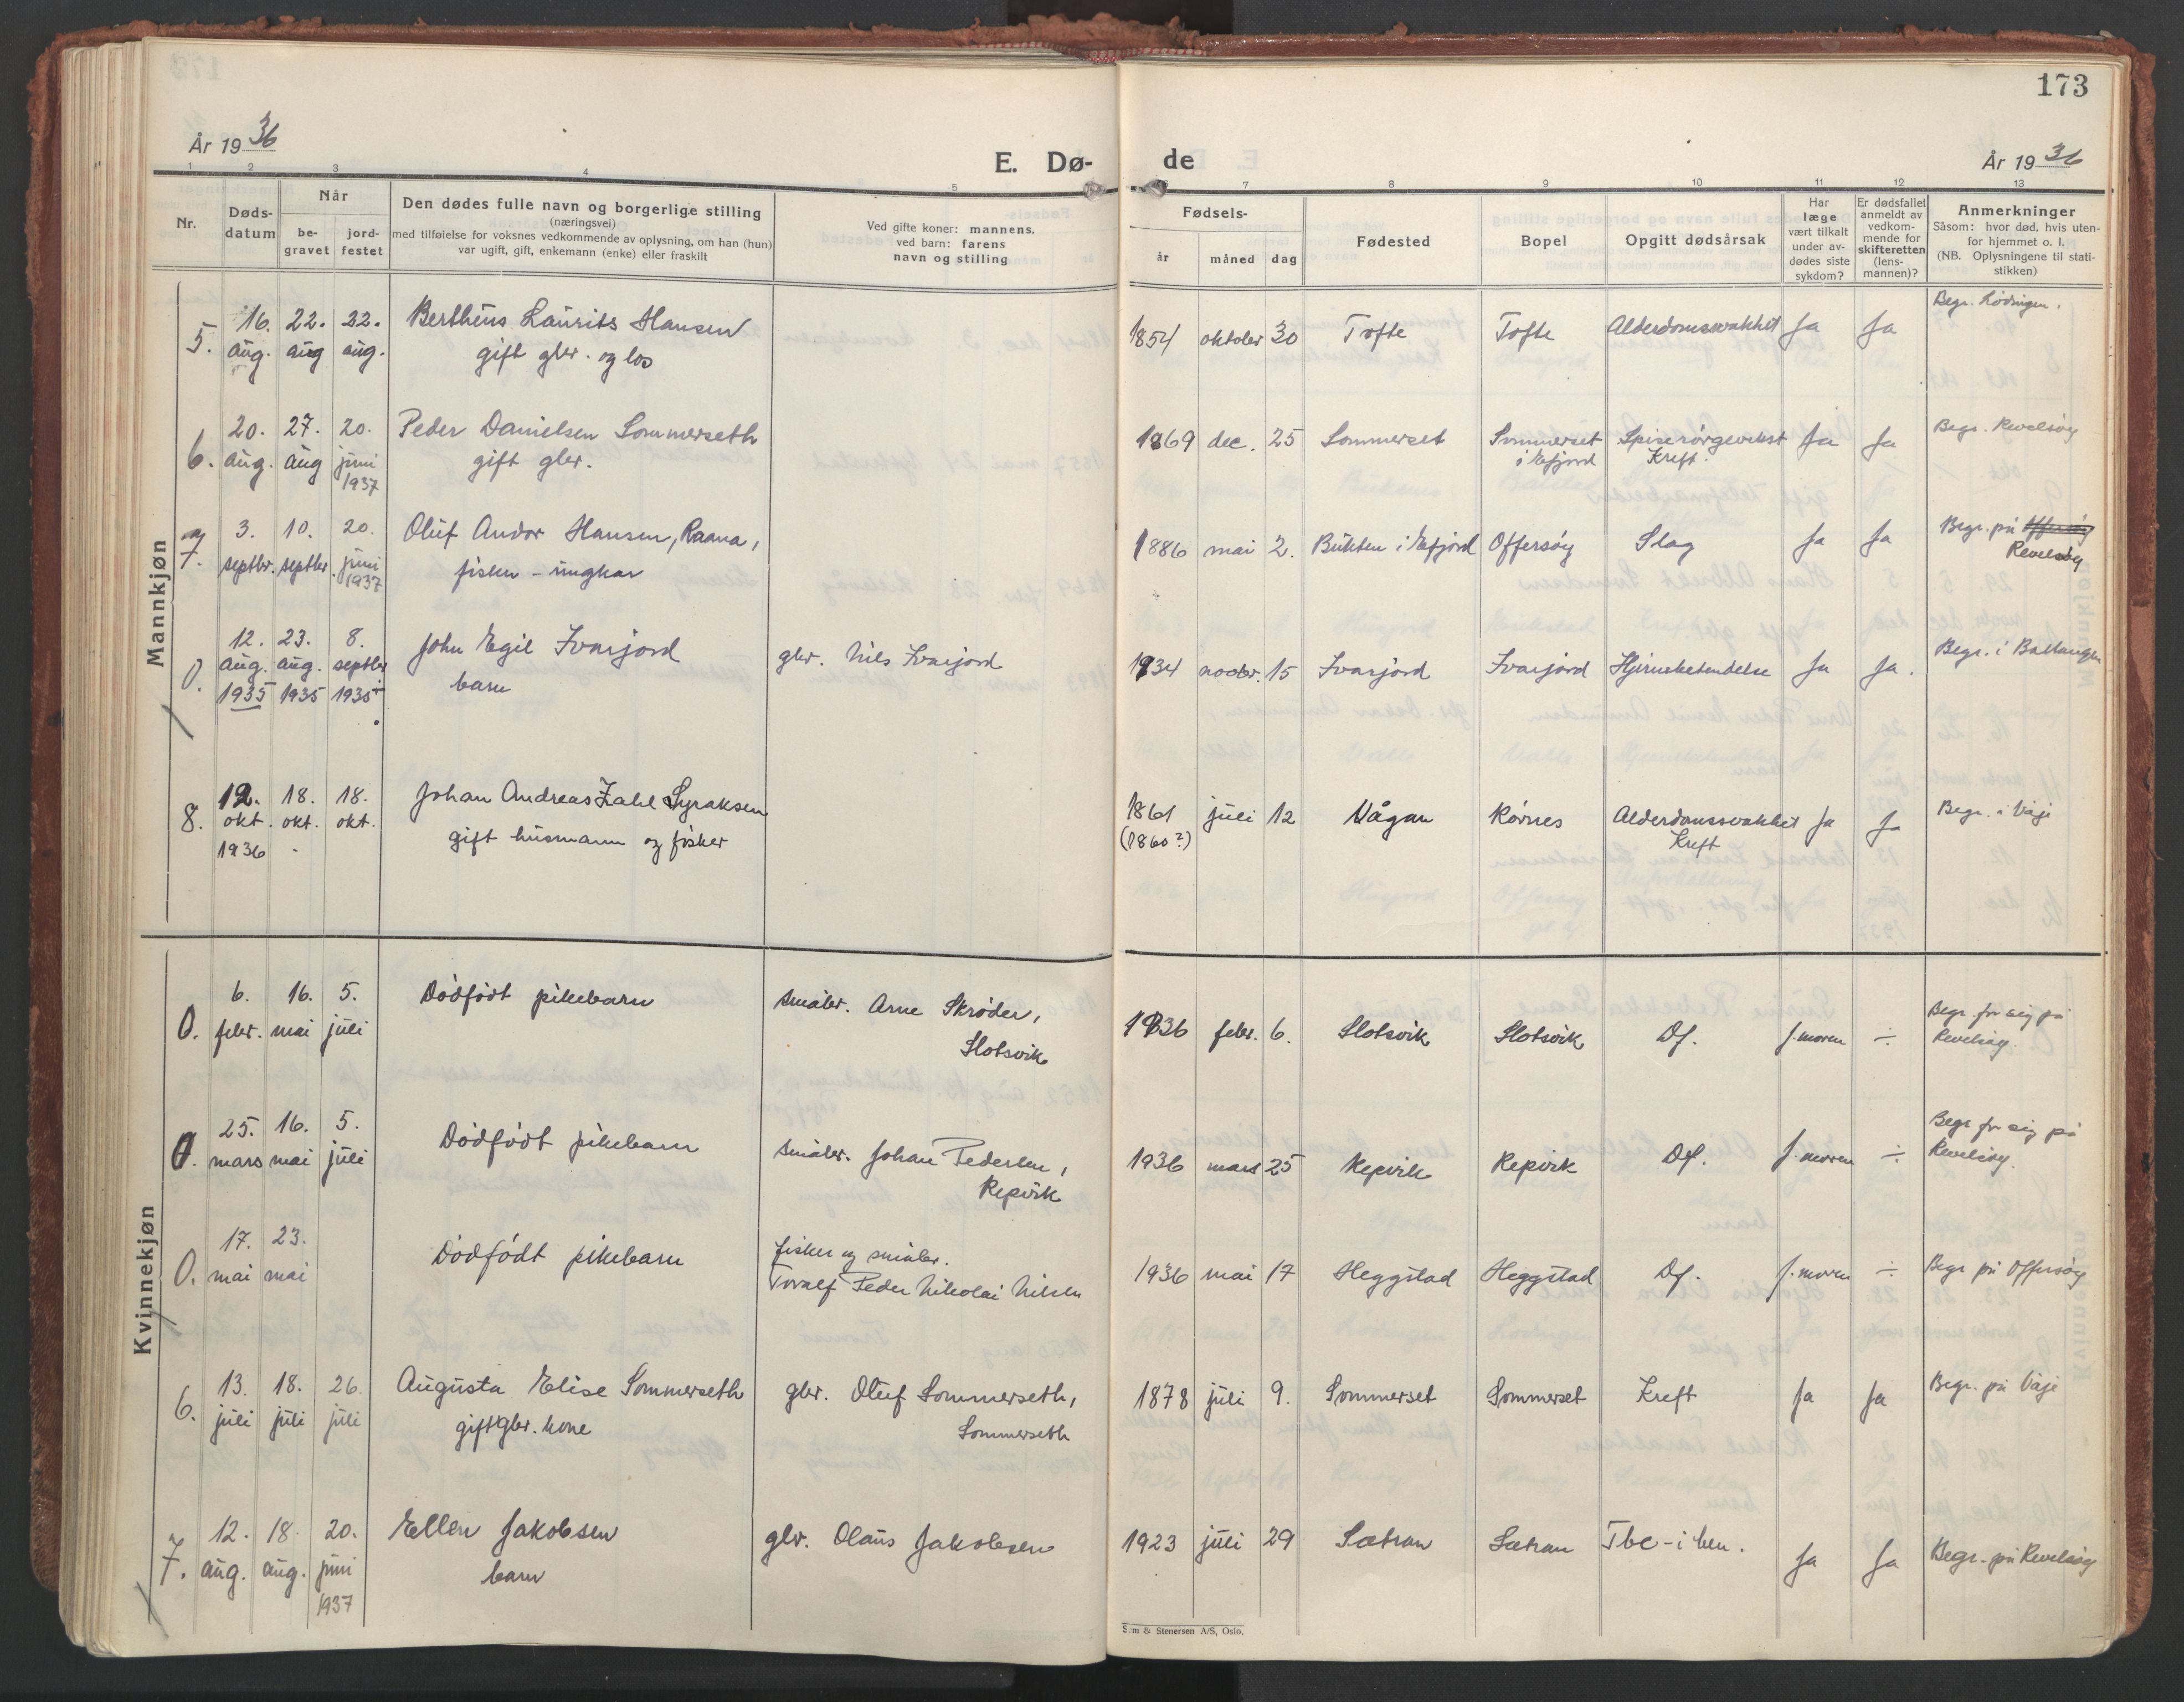 173
År 1936
E. Dø-
de
År 1936
1 2 3 4 5 6 7 8 9 10 11 12 13
Nr.
Døds-
datum
Når
be-
gravet
jord-
festet
Den dødes fulle navn og borgerlige stilling
(næringsvei)
med tilføielse for voksnes vedkommende av oplysning, om han (hun)
var ugift, gift, enkemann (enke) eller fraskilt
Ved gifte koner: mannens,
ved barn: farens
navn og stilling
Fødsels-
år måned dag
Fødested
Bopel
Opgitt dødsårsak
Har
læge
vært tilkalt
under av-
dødes siste
sykdom?
Er dødsfallet
anmeldt av
vedkom-
mende for
skifteretten
(lens-
mannen)?
Anmerkninger
Såsom: hvor død, hvis uten-
for hjemmet o. l.
(NB. Oplysningene til stati-
stikken)
Mannkjøn
5. 16. aug. 22. aug 22. aug.
Berthëus Laurits Hansen
gift gbr. og los
1854 oktober 30 Tofte Tofte Alderdomssvakhet Ja Ja Begr. Lødingen.
6. 20. aug. 27. aug 20. juni 1937
Peder Danielsen Sommerseth
gift gbr.
1869 dec. 25 Sommerset Sommerset i Efjord Spiserørgevekst Kreft. Ja Ja Begr. Revelsøy
7. 3. septbr. 10. septbr. 20. juni 1937
Oluf Andor Hansen, Raana,
fisker - ungkar
1886 mai 2. Bukten i Efjord Offersøy Slag Ja Ja Begr. på Offersøy
Revelsøy
0. 12. aug. 1935 23. aug. 1935 8. septbr 1935
John Egil Ivarjord
barn
gbr. Nils Ivarjord
1934 novbr. 15 Ivarjord Ivarjord Hjernebetendelse Ja Ja. Begr. i Ballangen
8. 12. okt. 1936 18. okt. 18. okt.
Johan Andreas Zahl Syraksen
gift husmann og fisker
1861 (1860?) juli 12 Vågan Rørnes Alderdomssvakhet Kreft Ja Ja Begr. i Våje
Kvinnekjøn
0. 6. febr. 16. mai 5. juli
Dødfødt pikebarn
småbr. Arne Skrøder,
Slotsvik
1936 febr. 6. Slotsvik Slotsvik Df. J. moren ÷ Begr. for sig på
Revelsøy.
0. 25. mars 16. mai 5. juli
Dødfødt pikebarn
småbr. Johan Pedersen,
Repvik
1936 mars 25 Repvik Repvik Df. J. moren ÷ Begr for sig på
Revelsøy.
0. 17. mai 23. mai
Dødfødt pikebarn
fisker og småbr.
Toralf Peder Nikolai Nilsen
1936 mai 17 Heggstad Heggstad Df. J. moren ÷ Begr på Offersøy
6. 13. juli 18. juli 26. juli
Augusta Elise Sommerseth
gift gbr. kone
gbr. Oluf Sommerseth,
Sommerseth
1878 juli 9. Sommerset Sommerset Kreft Ja Ja Begr. på Våje
7. 12. aug. 18. aug. 20. juni 1937
Ellen Jakobsen
barn
gbr. Olaus Jakobsen
1923 juli 29 Sætran Sætran Tbc - i ben. Ja Ja Begr. på Revelsøy
Sem & Stenersen A/S, Oslo.